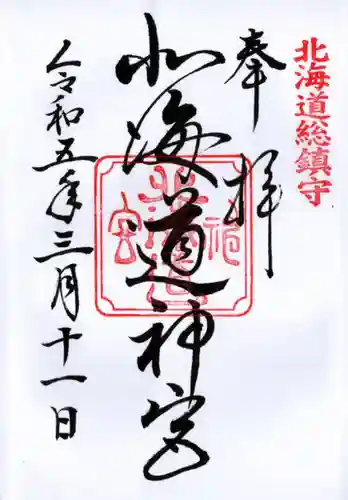 北海道総鎮守
奉拝
北海道神宮
令和五年三月十一日